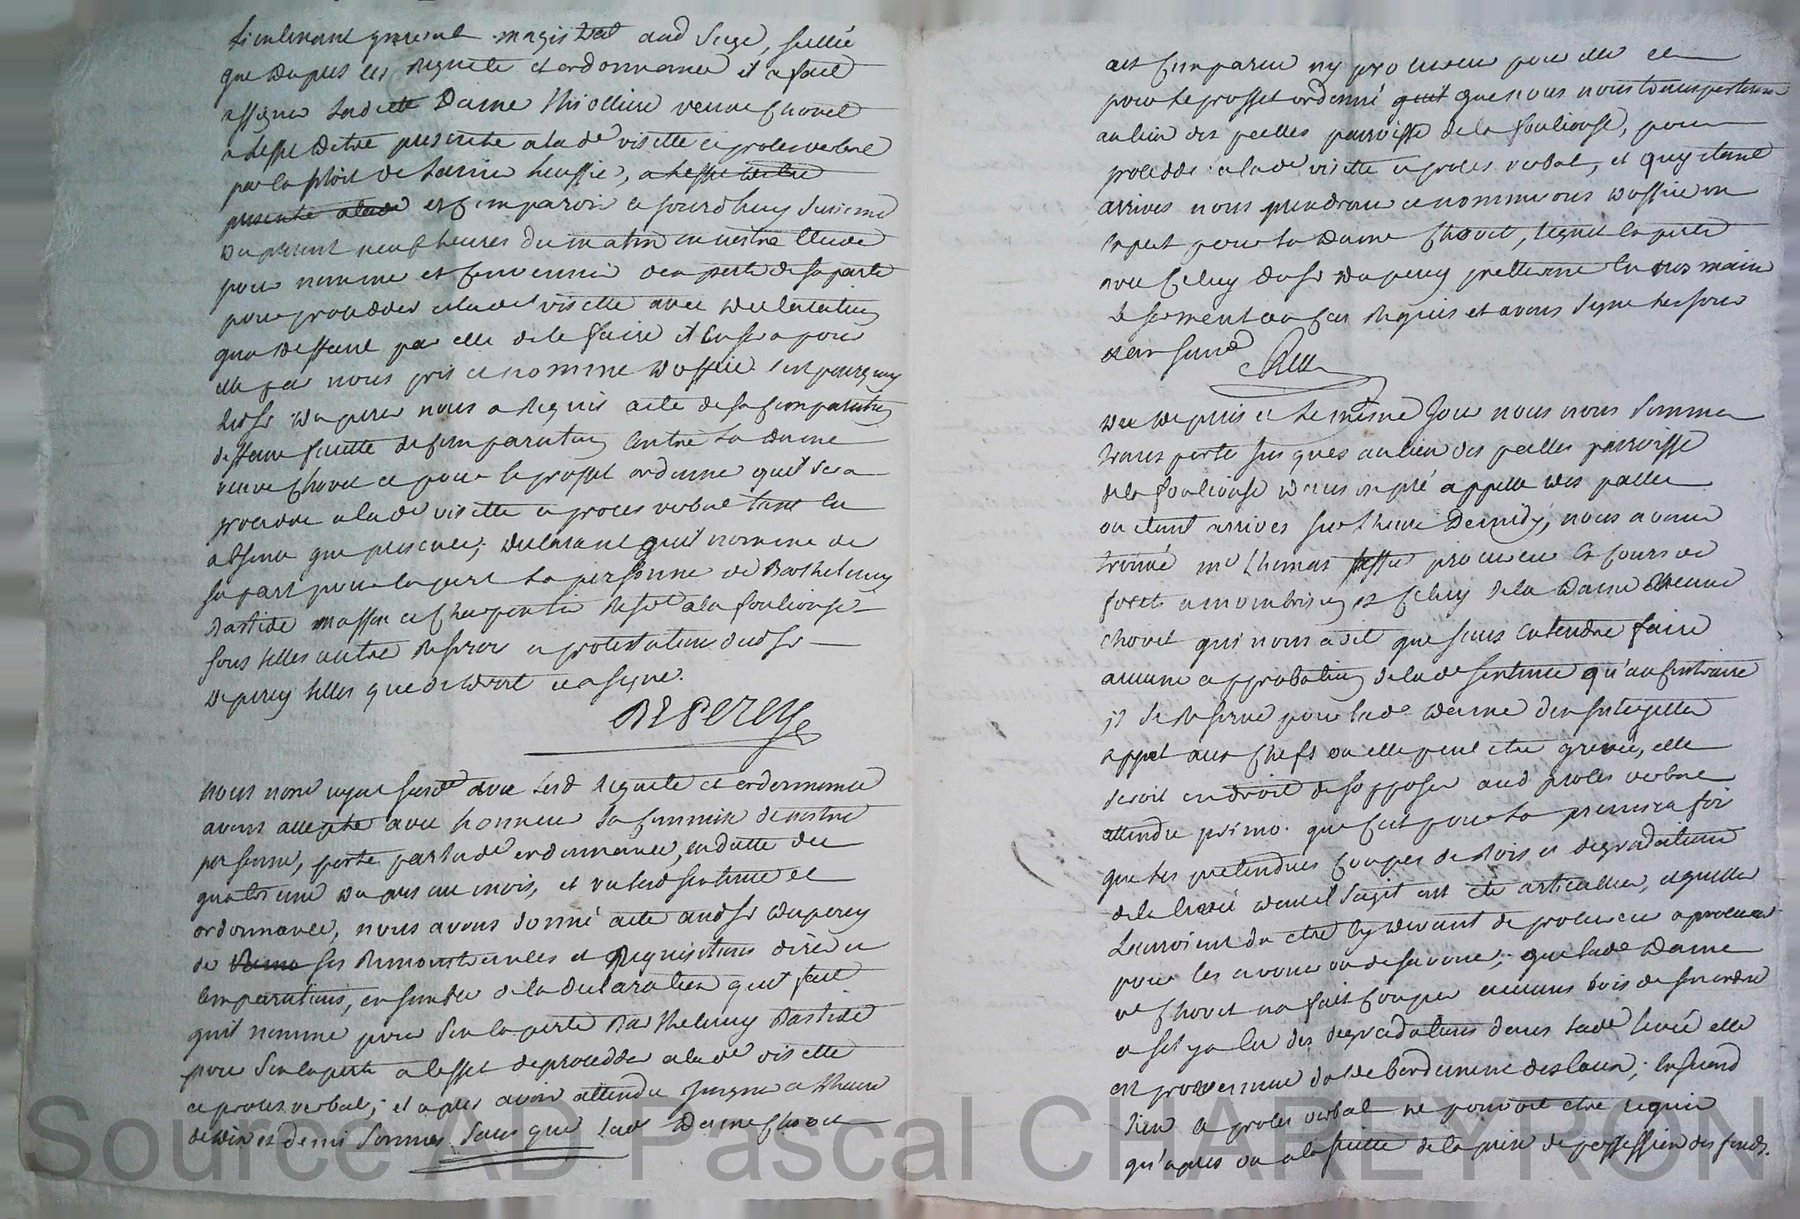 Lieutenant general magistral aud siege, scellée
que depuis les requete et ordonnance il a fait
assigner ladette Dame Thiolliere veuve Chovet
a leffet Detre presente a lade visitte et proces verbal
par exploit de huissier, a leffet detre
presente alade et Comparoir ce jourdhuy
du present neuf heures du matin en nostre Etude
pour nommer et convenir dexperts de sa part
pour procedder a lade visitte avec declaration
qua deffaut par elle de le faire il en sera pour
elle par nous pris et nommé doffice cest pourquoy
ledsr Duperey nous a requis acte de sa comparution
deffaut fautte de comparution contre la dame
veuve Chovet et pour le proffit ordonner quil sera
procedde a lade visitte et proces verbal tant en
absence que presence; declarant quil nomme de
sa part pour expert la personne de Barthelemy
Bastide masson et Charpentier a la fouliouse
sous telles autres reserves et protestations dudsr
Deperey telles que de droit et a signe.
DEPEREY
nous nore royal susde veu lesd requete et ordonnance
avons accepté avec honneur la commission de nostre
personne, porté par lade ordonnance, en datte du
quatorzieme mois, et vu lesd sentence et
ordonnance, nous avons donné acte audsr Duperey
de Remo ses Remonstrances et Requisitions dire et
comparutions, ensemble de la declaration quil fait
quil nomme pour son experte Barthelemy Bastide
pour son experte a leffet de procedder a lade visitte
et proces verbal; et apres avoir attendu jusque a lheure
de dix et demi sonnés sans que lade Dame Chovet
ait Comparu ny procureur pour elle et
pour le proffit ordonné quil que nous nous transporterons
au lieu des peelles parroisse de la fouliouse, pour
procedde a lade visitte et proces verbal, et quy etant
arrives nous prendrons et nommerons doffice un
expert pour la Dame Chovet, lequel experte
avec Celuy dusr Duperey prettera en nos mains
le serment au Cas requis et avons signe les jour
et an susde
Du Depuis et le mesme jour nous nous sommes
transporté jusques au lieu des peelles parroisse
de la fouliouse dans un pré appellé des pallea
ou etant arrives sur lheure De midy, nous avons
trouvé me thomas procureur es Cours de
forets a monbrison et Celuy de la Dame veuve
Chovet qui nous a dit que sans entendre faire
aucune approbation de lade sentence qu'au contraire
il se reserve pour lade Dame den interjetter
appel aux Chefs ou elle peut etre grevée, elle
seroit en droit de sopposer aud proces verbal
attendu primo. que cest pour la premiere fois
que les pretendues Coupes de Bois et degradations
de la levée dont il sagit ont eté articullés, et quelles
auroient du etre cy devant de procureur a procureur
pour les avoue ou desavoue; que lade Dame
ve Chovet na fait Couper aucuns bois de son ordre
et sil y a eu des degradations dans lade levée elle
est provenue du debordement des eaux; en second
lieu le proces verbal ne pouvoit etre requis
qu'apres ou a la suitte de la prise de possession des fonds.
Source AD Pascal CHAREYRON